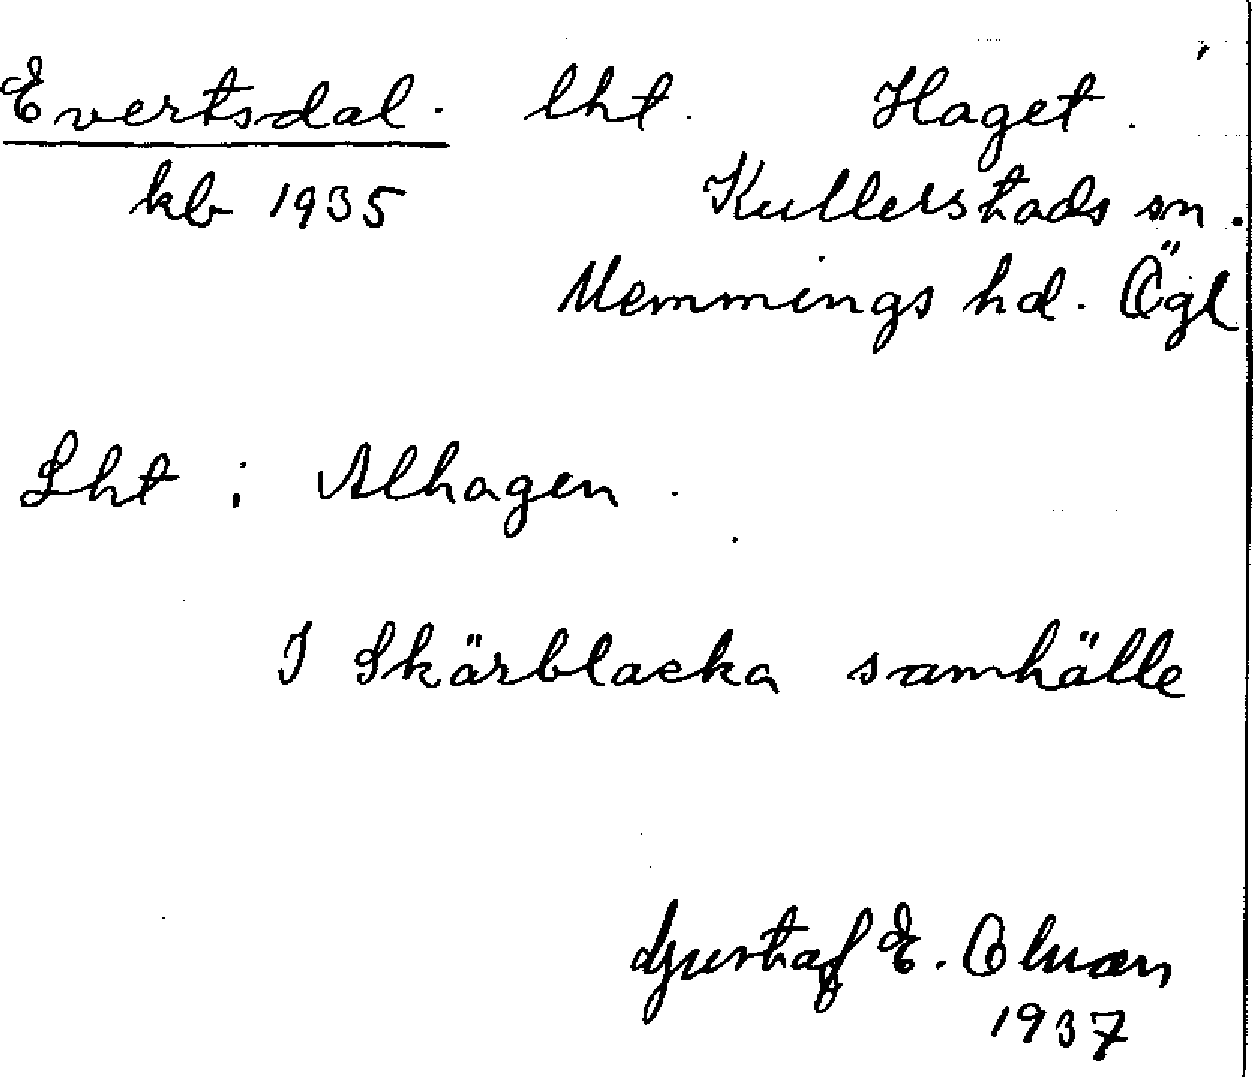 Evertsdal. lht. Haget.
kb 1935 Kullerstads sn.
Memmings hd. Ögl
Lht i Alhagen.
I Skärblacka samhälle
Gustaf E.
1937